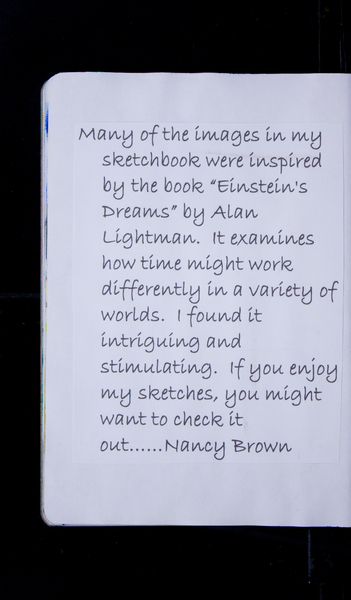 Many of the images in my
sketchbook were inspired
by the book “Einstein's
Dreams” by Alan
Lightman.  It examines
how time might work
differently in a variety of
worlds.  I found it
intriguing and
stimulating.  If you enjoy
my sketches, you might
want to check it
out......Nancy Brown